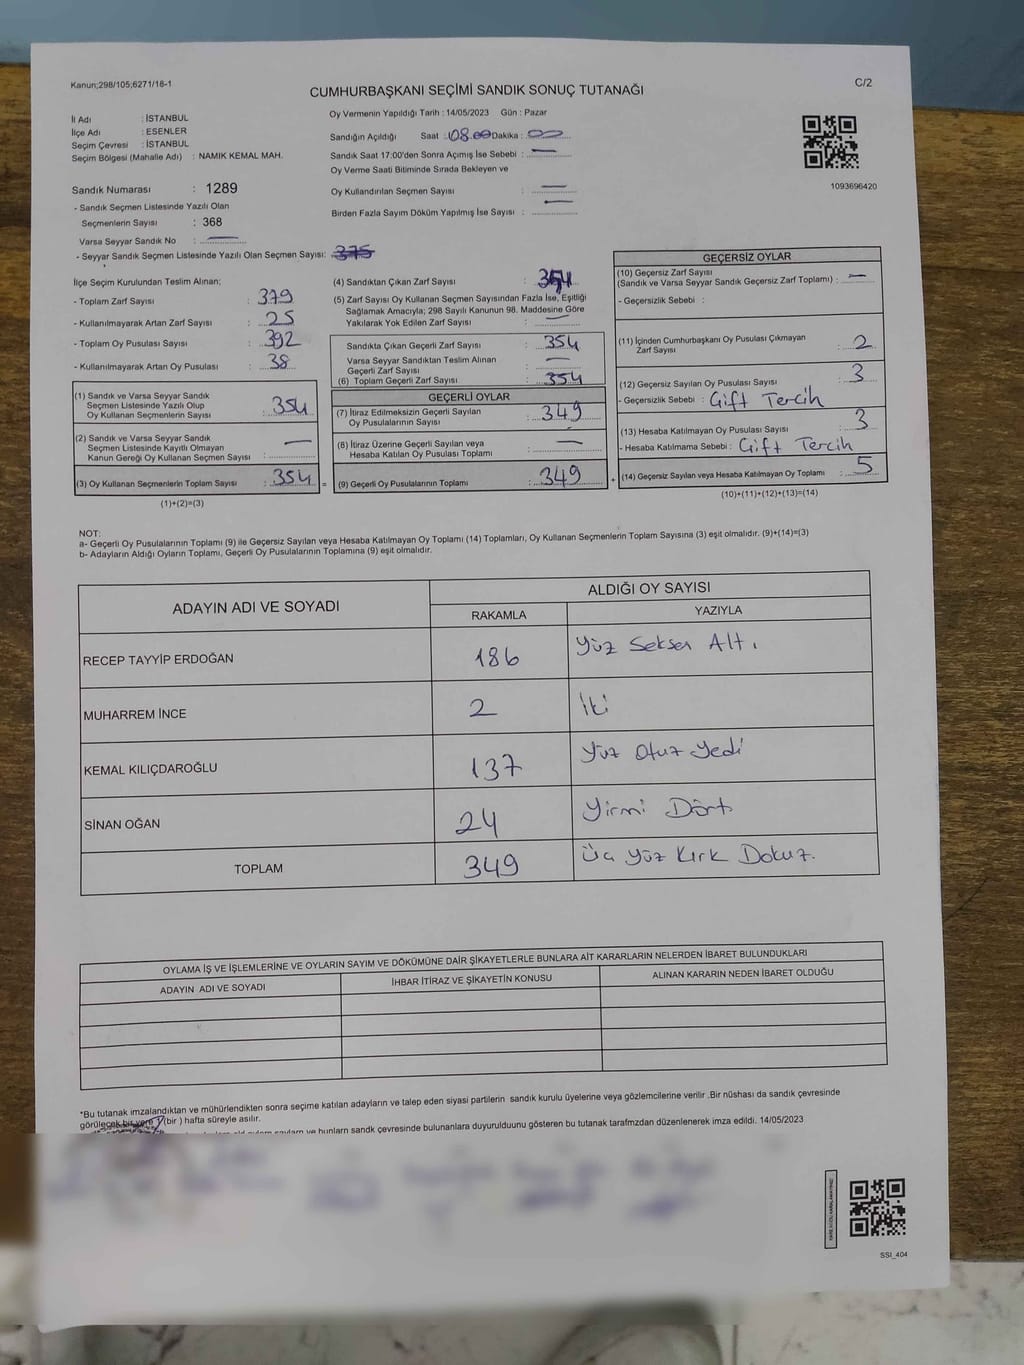 Kanun;298/105;6271/16-1
C/2
CUMHURBAŞKANI SEÇİMİ SANDIK SONUÇ TUTANAĞI
İl Adı : İSTANBUL
İlçe Adı : ESENLER
Seçim Çevresi : İSTANBUL
Seçim Bölgesi (Mahalle Adı) : NAMIK KEMAL MAH.
Sandık Numarası : 1289
- Sandık Seçmen Listesinde Yazılı Olan
Seçmenlerin Sayısı : 368
Varsa Seyyar Sandık No : —
- Seyyar Sandık Seçmen Listesinde Yazılı Olan Seçmen Sayısı: 375
Oy Vermenin Yapıldığı Tarih : 14/05/2023 Gün : Pazar
Sandığın Açıldığı Saat : 08.00 Dakika : 00
Sandık Saat 17:00'den Sonra Açımış İse Sebebi : —
Oy Verme Saati Bitiminde Sırada Bekleyen ve
Oy Kullandırılan Seçmen Sayısı : —
Birden Fazla Sayım Döküm Yapılmış İse Sayısı : —
1093696420
İlçe Seçim Kurulundan Teslim Alınan;
- Toplam Zarf Sayısı : 379
- Kullanılmayarak Artan Zarf Sayısı : 25
- Toplam Oy Pusulası Sayısı : 392
- Kullanılmayarak Artan Oy Pusulası : 38
(1) Sandık ve Varsa Seyyar Sandık
Seçmen Listesinde Yazılı Olup
Oy Kullanan Seçmenlerin Sayısı : 354
(2) Sandık ve Varsa Seyyar Sandık
Seçmen Listesinde Kayıtlı Olmayan
Kanun Gereği Oy Kullanan Seçmen Sayısı : —
(3) Oy Kullanan Seçmenlerin Toplam Sayısı : 354 =
(1)+(2)=(3)
(4) Sandıktan Çıkan Zarf Sayısı : 354
(5) Zarf Sayısı Oy Kullanan Seçmen Sayısından Fazla İse, Eşitliği
Sağlamak Amacıyla; 298 Sayılı Kanunun 98. Maddesine Göre
Yakılarak Yok Edilen Zarf Sayısı : —
Sandıkta Çıkan Geçerli Zarf Sayısı : 354
Varsa Seyyar Sandıktan Teslim Alınan
Geçerli Zarf Sayısı : —
(6) Toplam Geçerli Zarf Sayısı : 354
GEÇERLİ OYLAR
(7) İtiraz Edilmeksizin Geçerli Sayılan
Oy Pusulalarının Sayısı : 349
(8) İtiraz Üzerine Geçerli Sayılan veya
Hesaba Katılan Oy Pusulası Toplamı : —
(9) Geçerli Oy Pusulalarının Toplamı : 349 +
GEÇERSİZ OYLAR
(10) Geçersiz Zarf Sayısı
(Sandık ve Varsa Seyyar Sandık Geçersiz Zarf Toplamı) : —
- Geçersizlik Sebebi :
(11) İçinden Cumhurbaşkanı Oy Pusulası Çıkmayan
Zarf Sayısı : 2
(12) Geçersiz Sayılan Oy Pusulası Sayısı : 3
- Geçersizlik Sebebi : Çift Tercih
(13) Hesaba Katılmayan Oy Pusulası Sayısı : 3
- Hesaba Katılmama Sebebi : Çift Tercih
(14) Geçersiz Sayılan veya Hesaba Katılmayan Oy Toplamı : 5
(10)+(11)+(12)+(13)=(14)
NOT:
a- Geçerli Oy Pusulalarının Toplamı (9) ile Geçersiz Sayılan veya Hesaba Katılmayan Oy Toplamı (14) Toplamları, Oy Kullanan Seçmenlerin Toplam Sayısına (3) eşit olmalıdır. (9)+(14)=(3)
b- Adayların Aldığı Oyların Toplamı, Geçerli Oy Pusulalarının Toplamına (9) eşit olmalıdır.
ADAYIN ADI VE SOYADI
ALDIĞI OY SAYISI
RAKAMLA YAZIYLA
RECEP TAYYİP ERDOĞAN 186 Yüz Seksen Altı
MUHARREM İNCE 2 İki
KEMAL KILIÇDAROĞLU 137 Yüz Otuz Yedi
SİNAN OĞAN 24 Yirmi Dört
TOPLAM 349 Üç Yüz Kırk Dokuz.
OYLAMA İŞ VE İŞLEMLERİNE VE OYLARIN SAYIM VE DÖKÜMÜNE DAİR ŞİKAYETLERLE BUNLARA AİT KARARLARIN NELERDEN İBARET BULUNDUKLARI
ADAYIN ADI VE SOYADI İHBAR İTİRAZ VE ŞİKAYETİN KONUSU ALINAN KARARIN NEDEN İBARET OLDUĞU
*Bu tutanak imzalandıktan ve mühürlendikten sonra seçime katılan adayların ve talep eden siyasi partilerin sandık kurulu üyelerine veya gözlemcilerine verilir .Bir nüshası da sandık çevresinde
görülecek bir yere 7(bir ) hafta süreyle asılır.
ve bunların sandk çevresinde bulunanlara duyurulduunu gösteren bu tutanak tarafmzdan düzenlenerek imza edildi. 14/05/2023
SSI_404